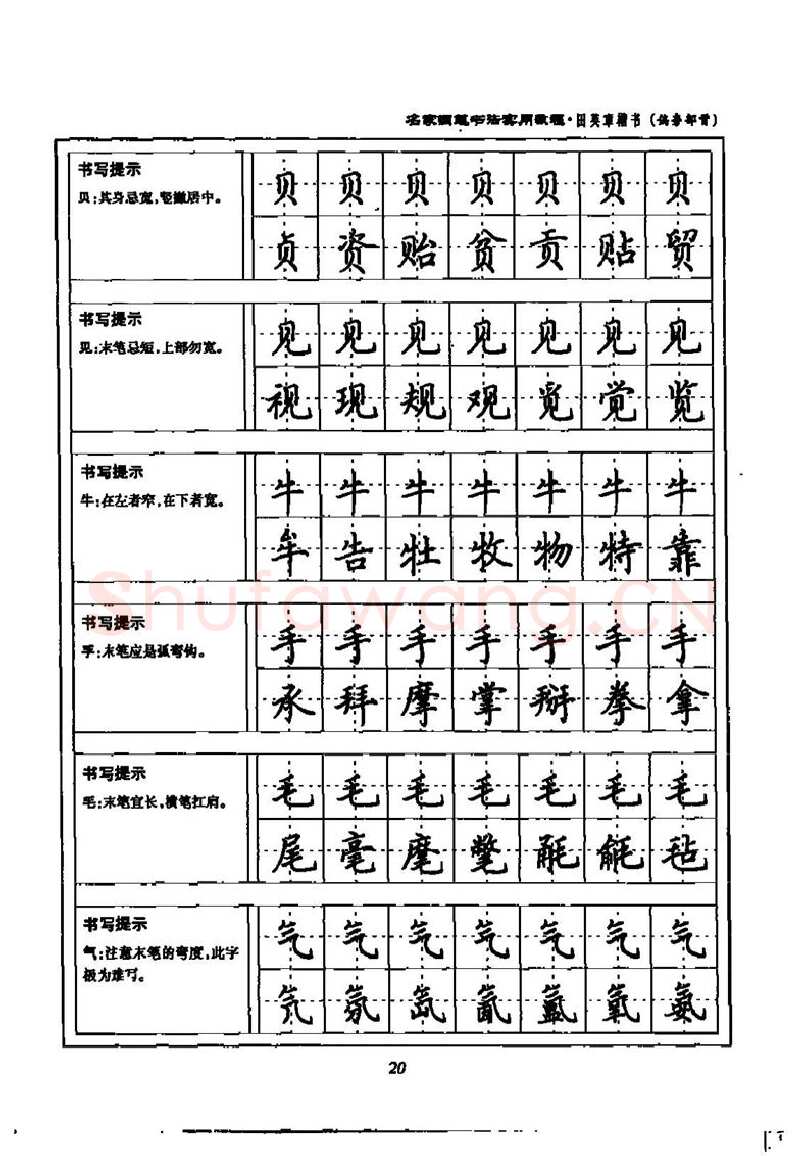 名家钢笔书法实用教程·田英章楷书（偏旁部首）
书写提示
贝:其身忌宽,竖撇居中。
贝 贝 贝 贝 贝 贝 贝
贞 资 贻 贫 贡 贴 贸
书写提示
见:末笔忌短,上部勿宽。
见 见 见 见 见 见 见
视 现 规 观 觅 觉 览
书写提示
牛:在左者窄,在下者宽。
牛 牛 牛 牛 牛 牛 牛
牟 告 牡 牧 物 特 靠
书写提示
手:末笔应是弧弯钩。
手 手 手 手 手 手 手
承 拜 摩 掌 掰 拳 拿
书写提示
毛:末笔宜长,横笔扛肩。
毛 毛 毛 毛 毛 毛 毛
尾 毫 麾 氅 毡
书写提示
气:注意末笔的弯度,此字
极为难写。
气 气 气 气 气 气 气
氖 氛 氙 氤 氲 氧 氨
20
Shufawang.CN